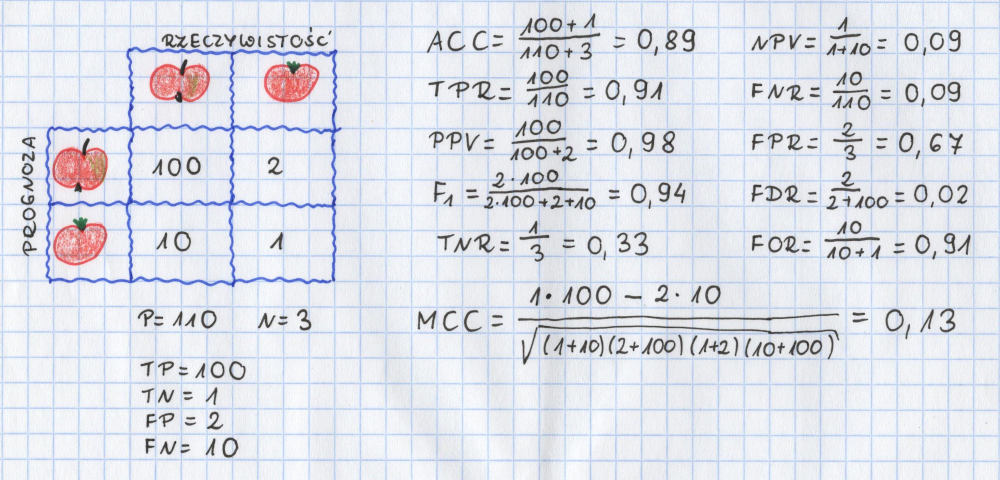 RZECZYWISTOŚĆ
PROGNOZA
100 2
10 1
P=110 N=3
TP=100
TN=1
FP=2
FN=10
ACC= (100+1)/(110+3) = 0,89
TPR= 100/110 = 0,91
PPV= 100/(100+2) = 0,98
F₁= (2·100)/(2·100+2+10) = 0,94
TNR= 1/3 = 0,33
NPV= 1/(1+10) = 0,09
FNR= 10/110 = 0,09
FPR= 2/3 = 0,67
FDR= 2/(2+100) = 0,02
FOR= 10/(10+1) = 0,91
MCC= (1·100 - 2·10)/√((1+10)(2+100)(1+2)(10+100)) = 0,13